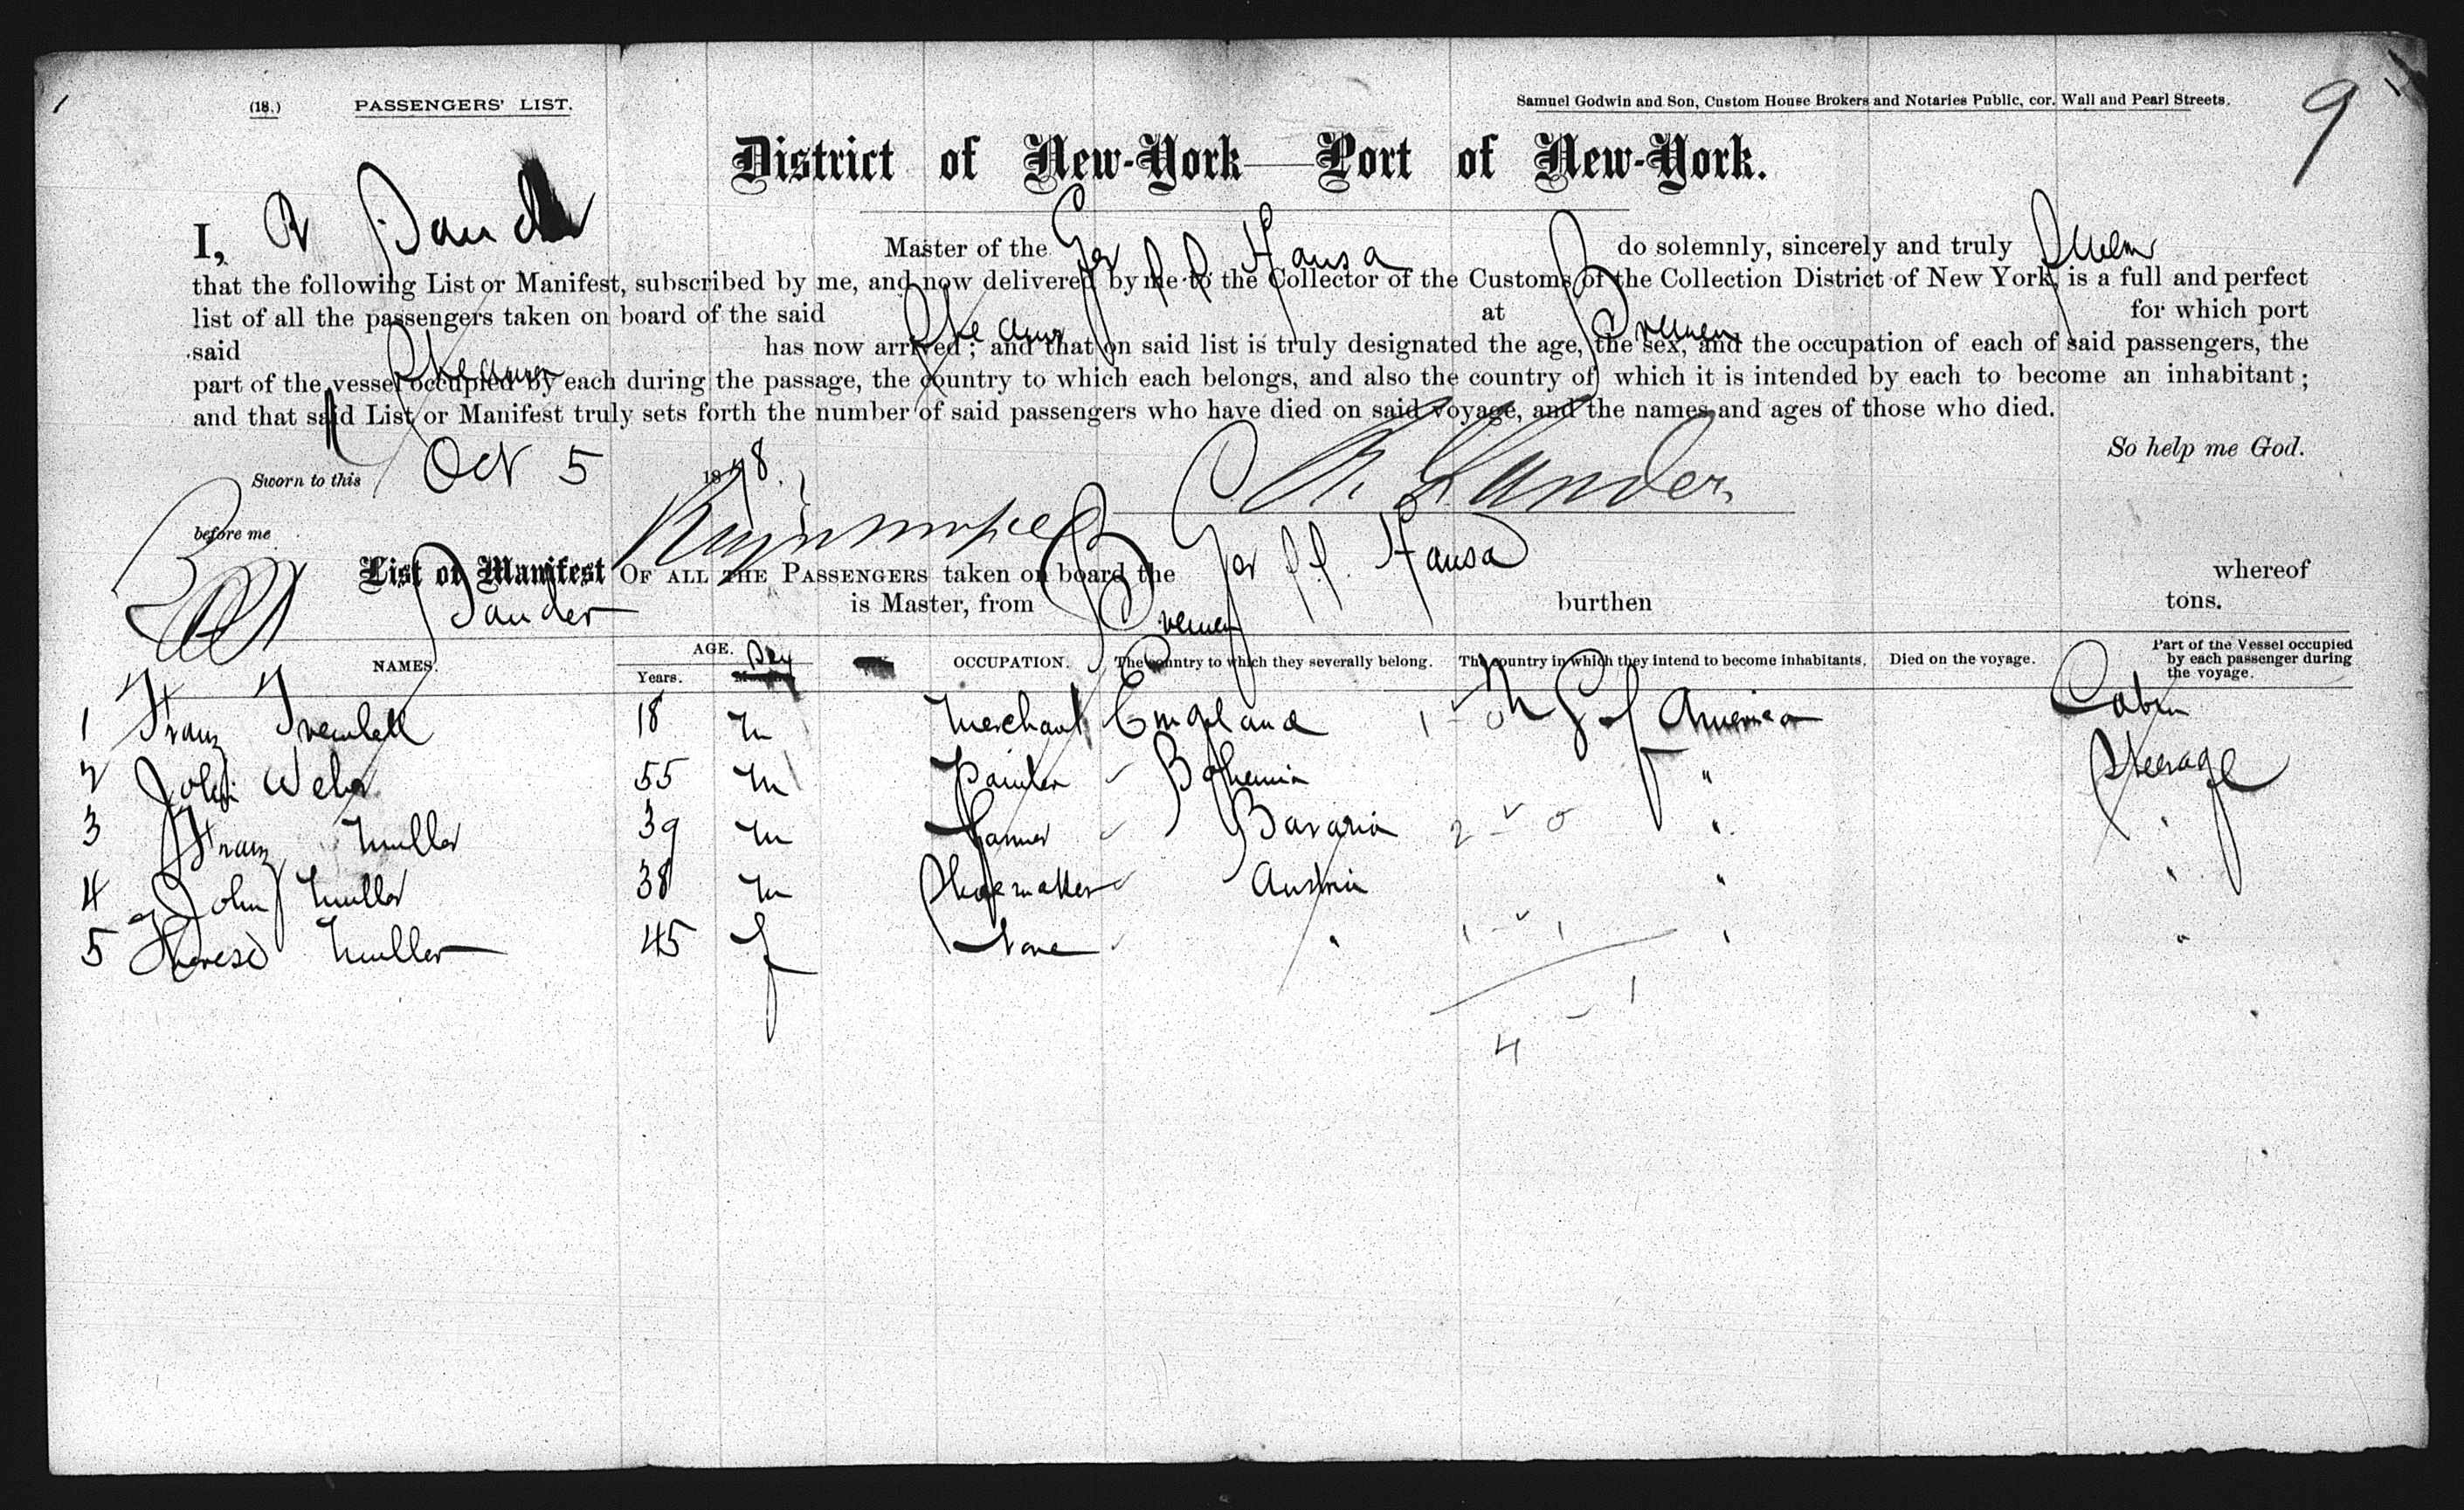 (18.) PASSENGERS' LIST. Samuel Godwin and Son, Custom House Brokers and Notaries Public, cor. Wall and Pearl Streets. 9
District of New-York—Port of New-York.
I, R Sander Master of the Ger S S Hansa do solemnly, sincerely and truly Swear
that the following List or Manifest, subscribed by me, and now delivered by me to the Collector of the Customs of the Collection District of New York, is a full and perfect
list of all the passengers taken on board of the said Steamer at Bremen for which port
said Steamer has now arrived; and that on said list is truly designated the age, the sex, and the occupation of each of said passengers, the
part of the vessel occupied by each during the passage, the country to which each belongs, and also the country of which it is intended by each to become an inhabitant;
and that said List or Manifest truly sets forth the number of said passengers who have died on said voyage, and the names and ages of those who died.
So help me God.
Sworn to this Oct 5 1878. Sander
before me
List or Manifest OF ALL THE PASSENGERS taken on board the Ger S S. Hansa whereof
Sander is Master, from Bremen burthen tons.
NAMES. AGE. Years. Sex OCCUPATION. The country to which they severally belong. The country in which they intend to become inhabitants. Died on the voyage. Part of the Vessel occupied by each passenger during the voyage.
1 Franz 18 M Merchant England 1 - 0 U S of America Cabin
2 John Weber 55 M Painter Bohemia " Steerage
3 Franz Muller 39 M Farmer Bavaria 2 - 0 " "
4 John Muller 38 M Shoemaker Austria " "
5 Therese Muller 45 f None " 1 - 1 " "
4 - 1